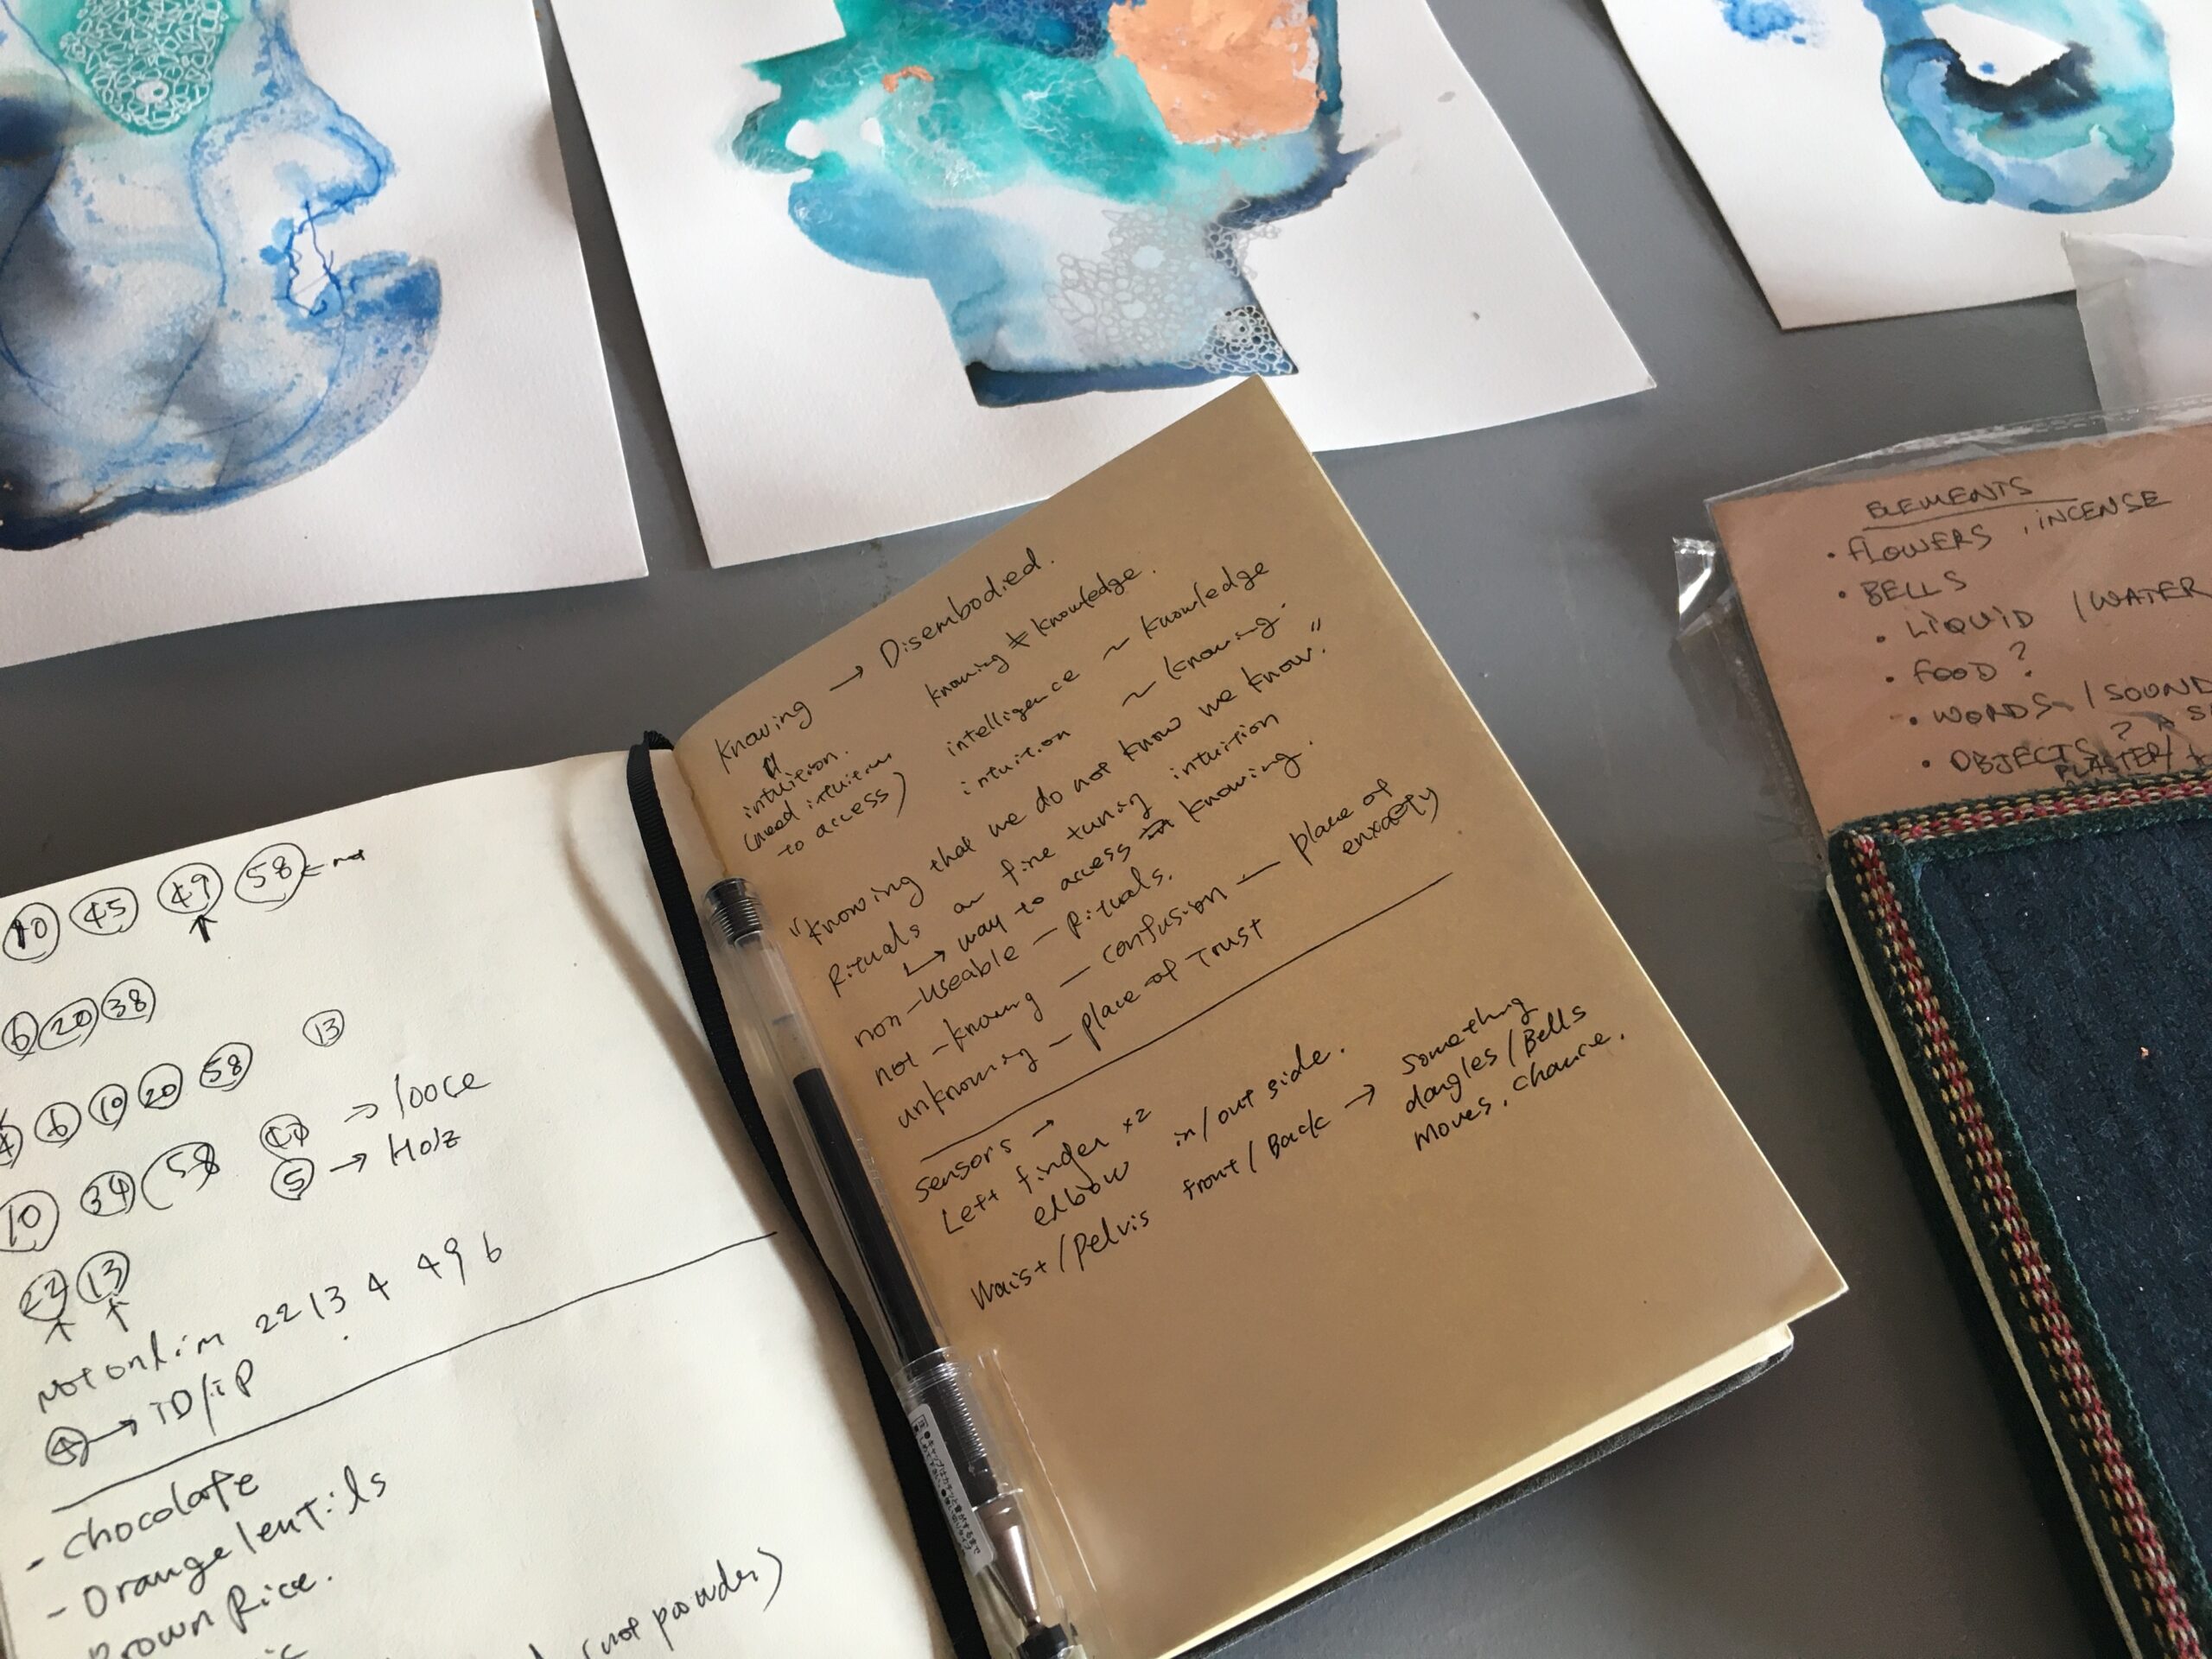 10 45 49 58 ← not
6 20 38
13
4 6 10 20 58
10 34 (58 → looce
5 → Holz
22 13
Not on him 22 13 4 49 6
4 → ID/iP
- chocolate
- Orange lentils
Brown Rice.
(not powder)
Knowing → Disembodied.
intuition.
(need intuition
to access)
knowing ≠ knowledge.
intelligence ~ knowledge
intuition ~ knowing.
"Knowing that we do not know we know."
Rituals as fine tuning intuition
↳ way to access knowing.
non-useable — Rituals.
not-knowing — confusion — place of
unknowing — place of Trust
sensors →
Left finder x2
elbow in/out side.
Waist/Pelvis front/Back → something
dangles/Bells
Moves. chance.
ELEMENTS
• FLOWERS, INCENSE
• BELLS
• LIQUID /WATER
• FOOD?
• WORDS /SOUND
• OBJECTS?
PLASTER/